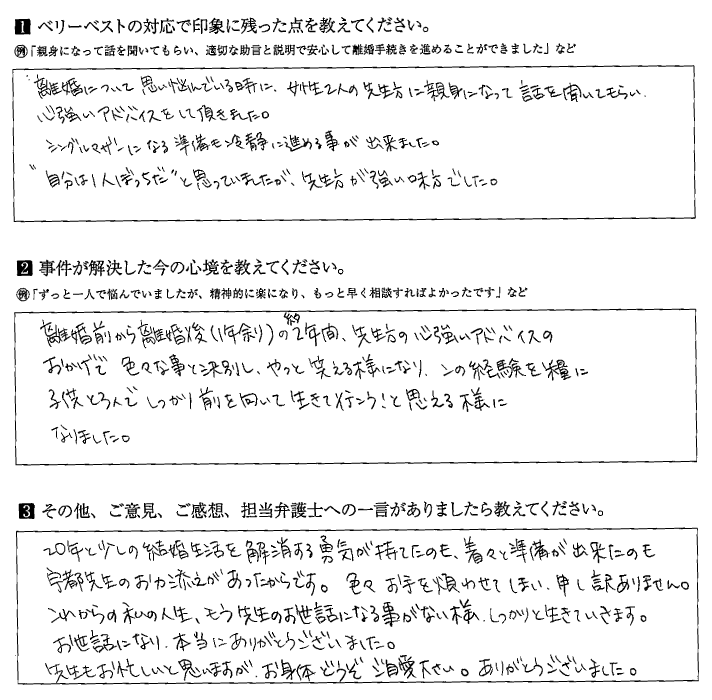 1 ベリーベストの対応で印象に残った点を教えてください。
例「親身になって話を聞いてもらい、適切な助言と説明で安心して離婚手続きを進めることができました」など
離婚について思い悩んでいる時に、女性2人の先生方に親身になって話を聞いてもらい、
心強いアドバイスをして頂きました。
シングルマザーになる準備も冷静に進める事が出来ました。
"自分は1人ぼっちだ"と思っていましたが、先生方が強い味方でした。
2 事件が解決した今の心境を教えてください。
例「ずっと一人で悩んでいましたが、精神的に楽になり、もっと早く相談すればよかったです」など
離婚前から離婚後(1年余り)の約2年間、先生方の心強いアドバイスの
おかげで色々な事と決別し、やっと笑える様になり、この経験を糧に
子供と3人でしっかり前を向いて生きて行こう!と思える様に
なりました。
3 その他、ご意見、ご感想、担当弁護士への一言がありましたら教えてください。
20年と少しの結婚生活を解消する勇気が持てたのも、着々と準備が出来たのも
宇都先生のお力添えがあったからです。色々お手を煩わせてしまい、申し訳ありません。
これからの私の人生、もう先生のお世話になる事がない様、しっかりと生きていきます。
お世話になり、本当にありがとうございました。
先生もお忙しいと思いますが、お身体どうぞご自愛下さい。ありがとうございました。